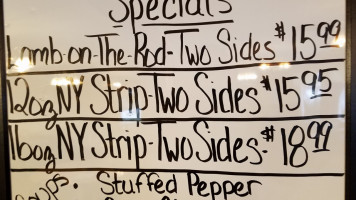 Specials
Lamb-on-The-Rod-Two Sides $15⁹⁹
12oz NY Strip-Two Sides $15⁹⁵
16oz NY Strip-Two Sides-$18⁹⁹
• Stuffed Pepper